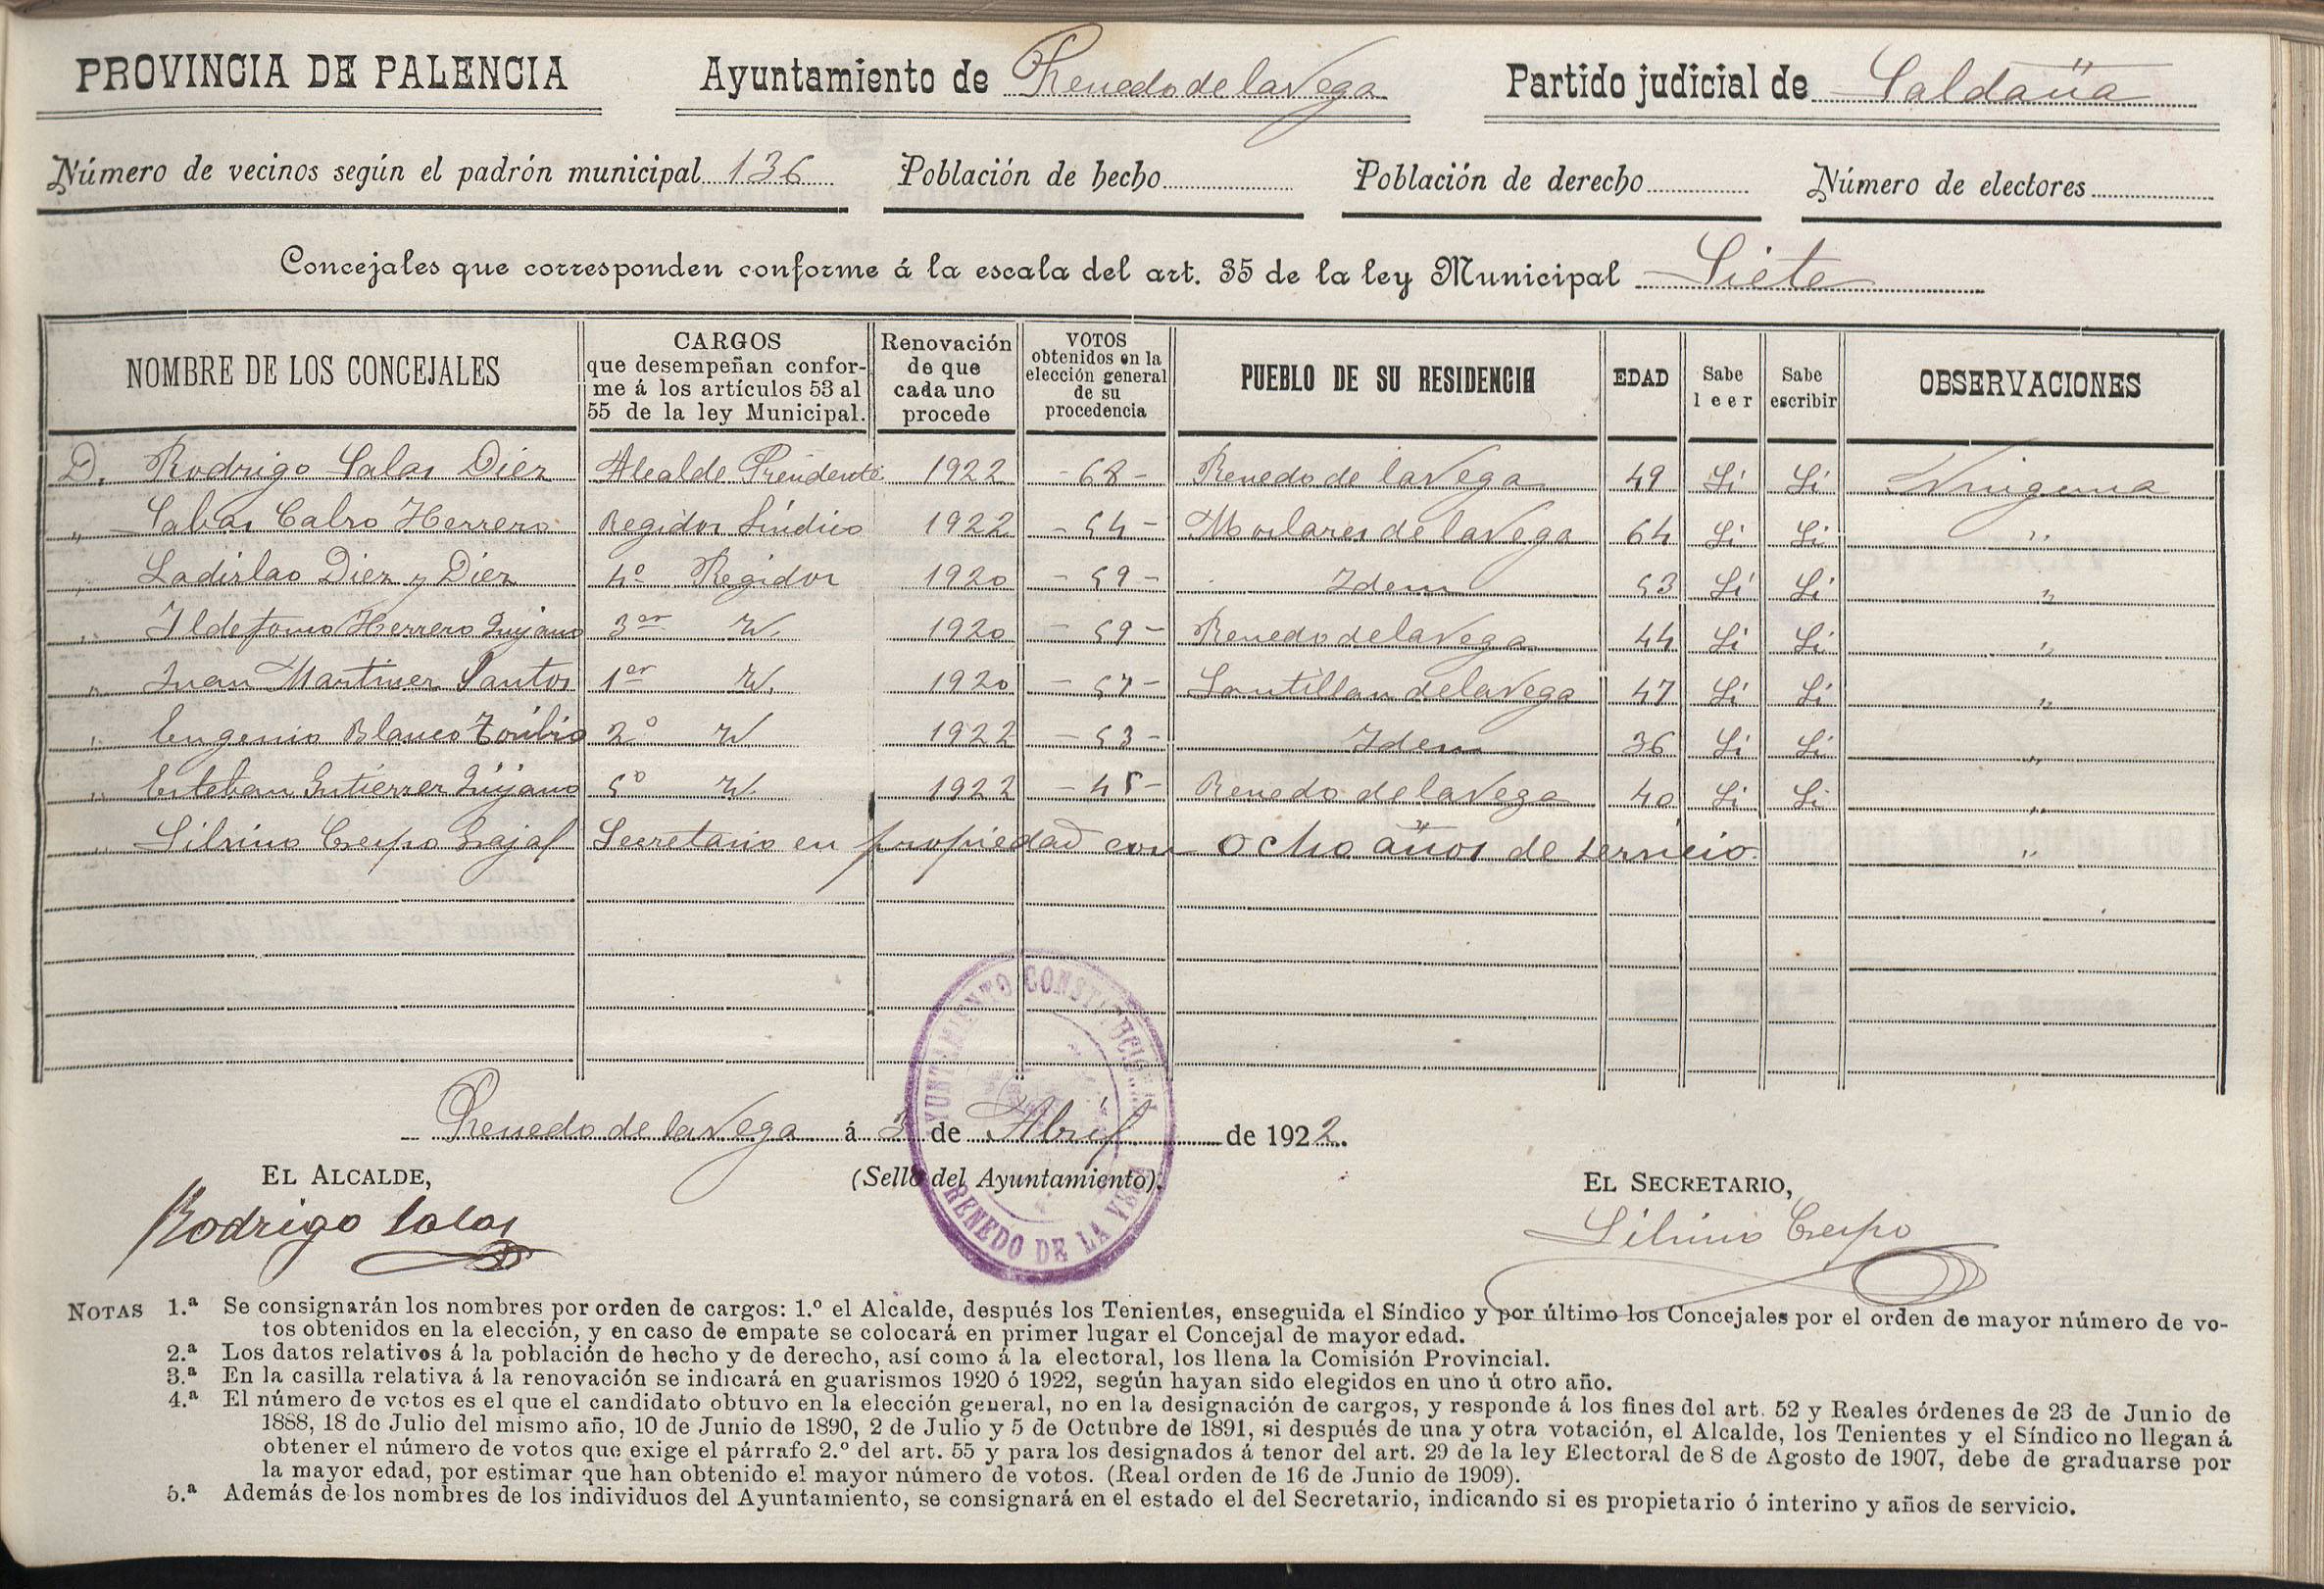 PROVINCIA DE PALENCIA Ayuntamiento de Renedo de la Vega Partido judicial de Saldaña
Número de vecinos según el padrón municipal 136 Población de hecho Población de derecho Número de electores
Concejales que corresponden conforme á la escala del art. 35 de la ley Municipal Siete
NOMBRE DE LOS CONCEJALES
CARGOS
que desempeñan confor-
me á los artículos 53 al
55 de la ley Municipal.
Renovación
de que
cada uno
procede
VOTOS
obtenidos en la
elección general
de su
procedencia
PUEBLO DE SU RESIDENCIA
EDAD
Sabe
leer
Sabe
escribir
OBSERVACIONES
D. Rodrigo Salas Diez Alcalde Presidente 1922 -68- Renedo de la Vega 49 Si Si Ninguna
„ Sabas Calvo Herrero Regidor Síndico 1922 -54- Moslares de la Vega 64 Si Si „
„ Ladislao Diez y Diez 4º Regidor 1920 -59- Idem 53 Si Si „
„ Ildefonso Herrero Quijano 3er 1920 -59- Renedo de la Vega 44 Si Si „
„ Juan Martinez Santos 1er 1920 Santillan de la Vega 47 Si Si „
„ Eugenio Blanco Toribio 2º 1922 -53- Idem 36 Si Si „
„ Esteban Gutierrez Quijano 5º 1922 -45- Renedo de la Vega 40 Si Si „
„ Silvino Crespo Grajal Secretario en propiedad con ocho años de servicio. „
Renedo de la Vega á 3 de Abril de 1922.
EL ALCALDE, (Sello del Ayuntamiento). EL SECRETARIO,
Rodrigo Salas Silvino Crespo
AYUNTAMIENTO CONSTITUCIONAL
RENEDO DE LA VEGA
NOTAS 1.ª Se consignarán los nombres por orden de cargos: 1.º el Alcalde, después los Tenientes, enseguida el Síndico y por último los Concejales por el orden de mayor número de vo-
tos obtenidos en la elección, y en caso de empate se colocará en primer lugar el Concejal de mayor edad.
2.ª Los datos relativos á la población de hecho y de derecho, así como á la electoral, los llena la Comisión Provincial.
3.ª En la casilla relativa á la renovación se indicará en guarismos 1920 ó 1922, según hayan sido elegidos en uno ú otro año.
4.ª El número de votos es el que el candidato obtuvo en la elección general, no en la designación de cargos, y responde á los fines del art. 52 y Reales órdenes de 23 de Junio de
1888, 18 de Julio del mismo año, 10 de Junio de 1890, 2 de Julio y 5 de Octubre de 1891, si después de una y otra votación, el Alcalde, los Tenientes y el Síndico no llegan á
obtener el número de votos que exige el párrafo 2.º del art. 55 y para los designados á tenor del art. 29 de la ley Electoral de 8 de Agosto de 1907, debe de graduarse por
la mayor edad, por estimar que han obtenido el mayor número de votos. (Real orden de 16 de Junio de 1909).
5.ª Además de los nombres de los individuos del Ayuntamiento, se consignará en el estado el del Secretario, indicando si es propietario ó interino y años de servicio.